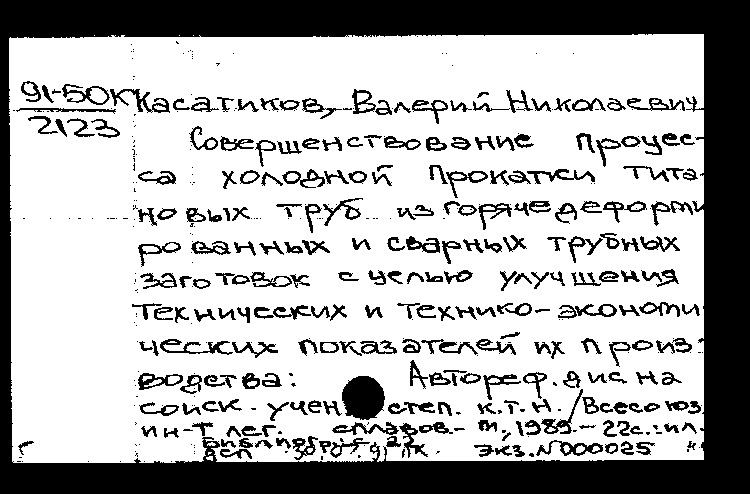 91-50К Касатиков, Валерий Николаевич
2123
Совершенствование процес-
са холодной прокатки тита-
новых труб из горячедеформи
рованных и сварных трубных
заготовок с целью улучшения
технических и технико-экономи-
ческих показателей их произ-
водства: Автореф. дис. на
соиск. учен. степ. к.т.н./ Всесоюз.
ин-т лег. сплавов.- М., 1989.- 22с.:ил.
Библиогр.: с. 22
дсп 30.07.91 Экз.N 000025